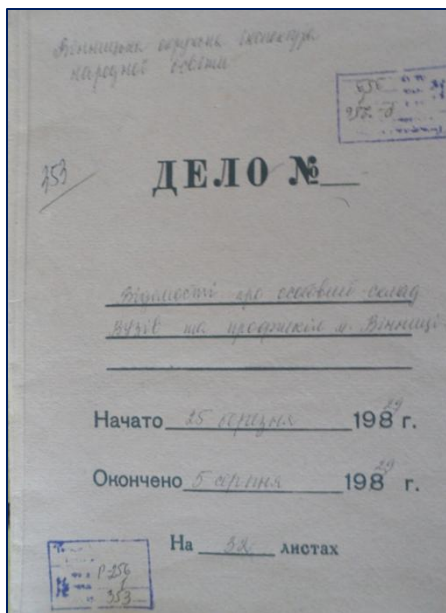 Вінницька окружна інспектура
народної освіти
353
ДЕЛО №
Відомості про особовий склад
ВУЗів та профшкіл м. Вінниці
Начато 25 березня 198 29 г.
Окончено 5 серпня 198 29 г.
На 32 листах
Р-256
353